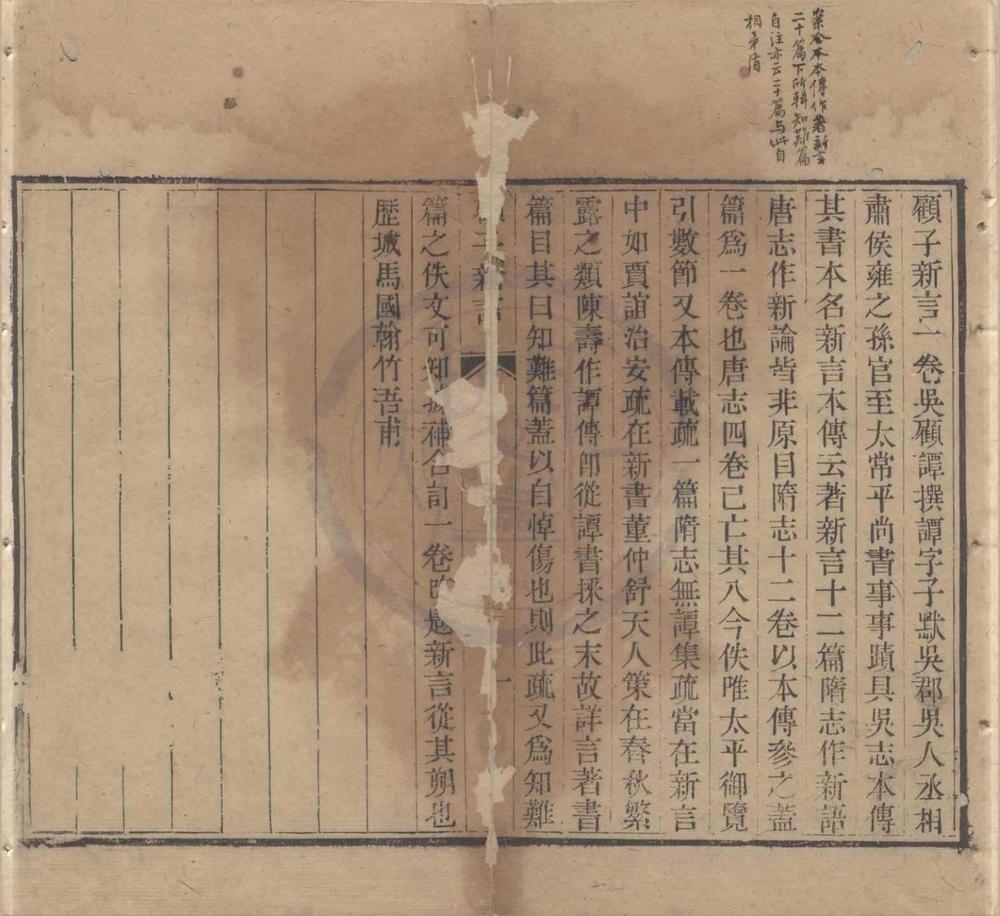 案今本本傳作著新言
二十篇下所輯知難篇
自注亦云二十篇与此自
相矛盾
顧子新言一卷吳顧譚撰譚字子默吳郡吳人丞相
肅侯雍之孫官至太常平尚書事事蹟具吳志本傳
其書本名新言本傳云著新言十二篇隋志作新語
唐志作新論皆非原目隋志十二卷以本傳參之蓋
篇爲一卷也唐志四卷己亡其八今佚唯太平御覽
引數節又本傳載疏一篇隋志無譚集疏當在新言
中如賈誼治安疏在新書董仲舒天人策在春秋繁
露之類陳壽作譚傳卽從譚書採之末故詳言著書
篇目其曰知難篇蓋以自悼傷也則此疏又爲知難
新言
一
篇之佚文可知據神合訂一卷題新言從其朔也
歷城馬國翰竹吾甫